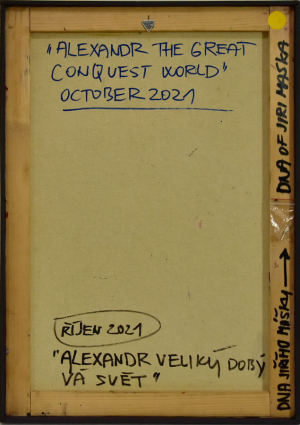 "ALEXANDR THE GREAT
CONQUEST WORLD"
OCTOBER 2021
DNA OF JIRI MAŠKA
DNA JIŘÍHO MÍŠKY →
ŘÍJEN 2021
"ALEXANDR VELIKÝ DOBÝ
VÁ SVĚT"